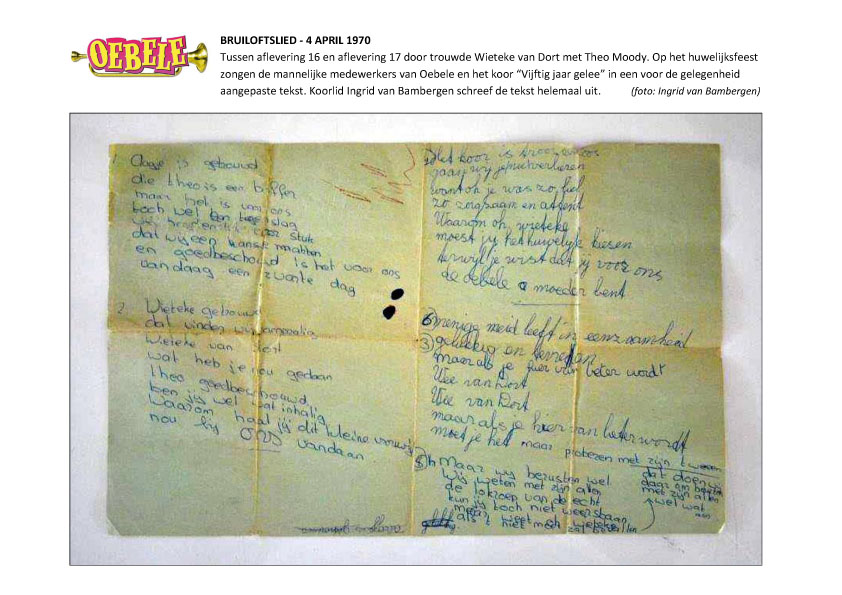 OEBELE
BRUILOFTSLIED - 4 APRIL 1970
Tussen aflevering 16 en aflevering 17 door trouwde Wieteke van Dort met Theo Moody. Op het huwelijksfeest
zongen de mannelijke medewerkers van Oebele en het koor “Vijftig jaar gelee” in een voor de gelegenheid
aangepaste tekst. Koorlid Ingrid van Bambergen schreef de tekst helemaal uit. (foto: Ingrid van Bambergen)
1. is getrouwd
die theo is een boffer
maar het is voor ons
toch wel een slag
stuk
dat wij een kans maakten
en goedbeschouwd is het voor ons
vandaag een zwarte dag
2. Wieteke getrouwd
dat vinden wij
Wieteke van Dort
wat heb je nou gedaan
theo goedbeschouwd
ben jij wel wat inhalig
waarom haal jij dit kleine
nou bij ons vandaan
Het koor is
gaan wij
want oh je was zo
zo zorgzaam en attent
Waarom oh wieteke
moest jij het huwelijk kiesen
terwijl je wist dat jij voor ons
de oebele moeder bent
6 menige meid leeft in eenzaamheid
3 gelukkig en tevreden
maar als je hier van beter wordt
Wee van Dort
Wee van Dort
maar als je hier van beter wordt
moet je het maar proberen met zijn tweeen
5 Maar wij berusten wel
Wij weten met zijn allen
de lokroep van de echt
kun je toch niet weerstaan
dat doen we
daar om
met zijn allen
wel wat